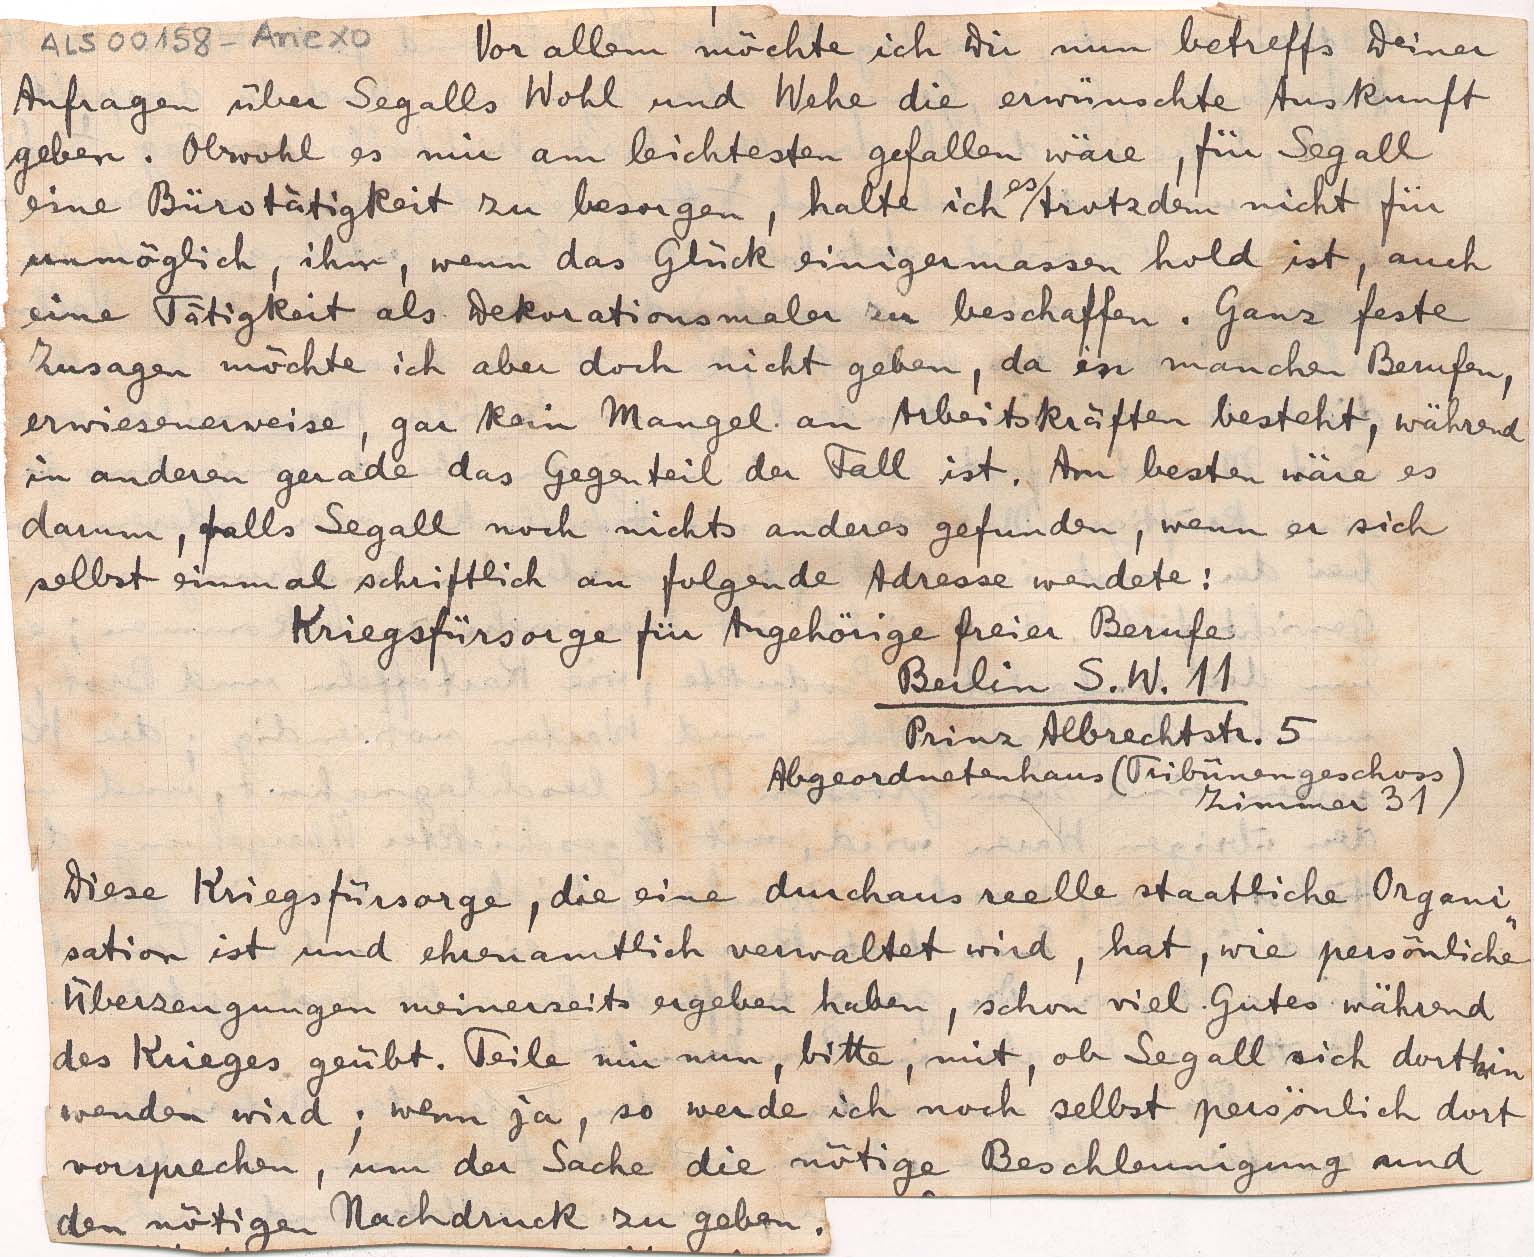 ALS 00158 - Anexo
Vor allem möchte ich Dir nun betreffs Deiner
Anfragen über Segalls Wohl und Wehe die erwünschte Auskunft
geben. Obwohl es mir am leichtesten gefallen wäre, für Segall
eine Bürotätigkeit zu besorgen, halte ich es trotzdem nicht für
unmöglich, ihm, wenn das Glück einigermassen hold ist, auch
eine Tätigkeit als Dekorationsmaler zu beschaffen. Ganz feste
Zusagen möchte ich aber doch nicht geben, da in manchen Berufen,
erwiesenerweise, gar kein Mangel an Arbeitskräften besteht, während
in anderen gerade das Gegenteil der Fall ist. Am besten wäre es
darum, falls Segall noch nichts anderes gefunden, wenn er sich
selbst einmal schriftlich an folgende Adresse wendete:
Kriegsfürsorge für Angehörige freier Berufe
Berlin S.W. 11
Prinz Albrechtstr. 5
Abgeordnetenhaus (Tribünengeschoss)
Zimmer 31)
Diese Kriegsfürsorge, die eine durchaus reelle staatliche Organi"
sation ist und ehrenamtlich verwaltet wird, hat, wie persönliche
Überzeugungen meinerseits ergeben haben, schon viel Gutes während
des Krieges geübt. Teile mir nun, bitte, mit, ob Segall sich dorthin
wenden wird; wenn ja, so werde ich noch selbst persönlich dort
vorsprechen, um der Sache die nötige Beschleunigung und
den nötigen Nachdruck zu geben.